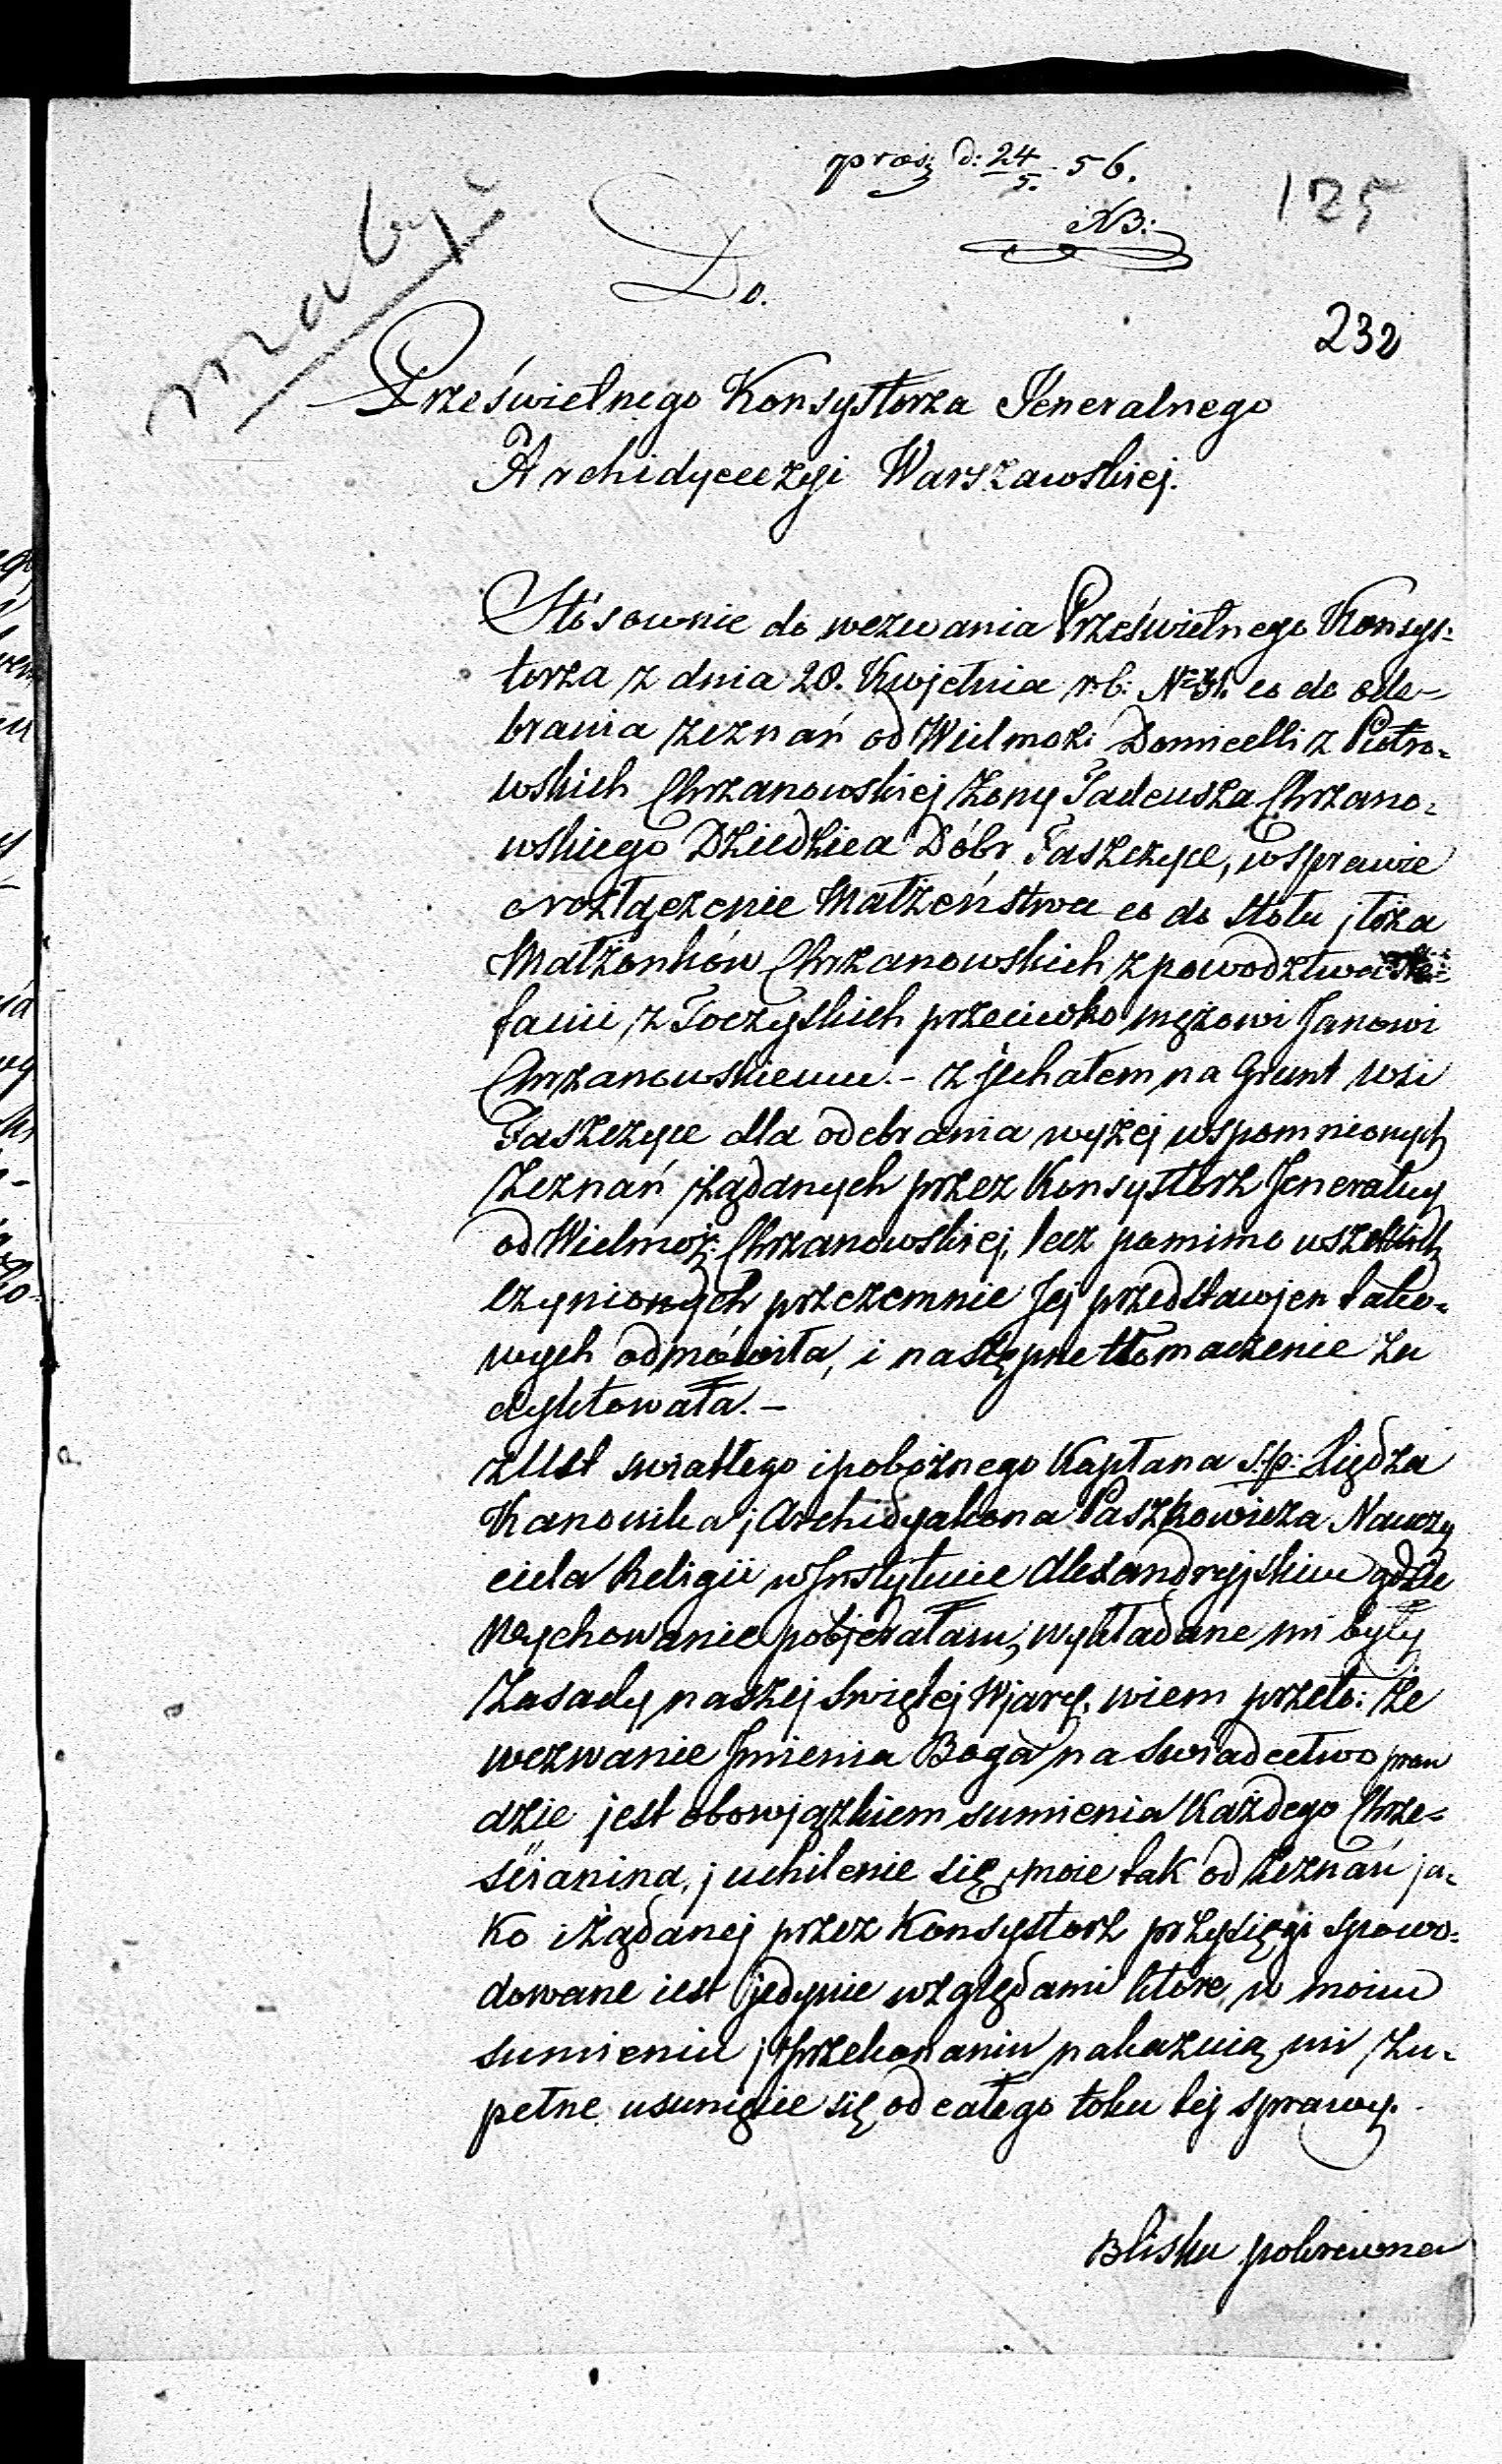 d: 24/5. 56.
NB:
125
232
Do.
Prześwietnego Konsystorza Jeneralnego
Archidyecezyi Warszawskiej.
Stósownie do wezwania Prześwietnego Konsys:
torza z dnia 28. Kwjetnia r. b: co do ode-
brania zeznań od Wielmoż: Domicelli z Piotro-
wskich Chrzanowskiej Żony Tadeusza Chrzano-
wskiego Dziedzica Dóbr Faszczyce, w sprawie
o rozłączenie Małżeństwa co do stołu j łoża
Małżonków Chrzanowskich, z powodztwa Ste-
fanii z Toczyskich przeciwko mężowi Janowi
Chrzanowskiemu. - zjechałem na Grunt wsi
Faszczyce dla odebrania wyżej wspomnionych
Zeznań żądanych przez Konsystorz Jeneralny
od Wielmoż: Chrzanowskiej, lecz pomimo wszelkich
czynionych przezemnie Jej przedstawjen tako-
wych odmówiła, i następne tłomaczenie za
dyktowała. -
z Ust swiatłego i pobożnego Kapłana ś. p: Xiędza
Kanonika j Archidyakona Paszkowicza Nauczy
ciela Religii w Instytucie Alexandryjskim gdzie
Wychowanie pobjerałam, wykładane mi były
Zasady naszej Swiętej Wjary. wiem przeto: że
wezwanie Jmienia Boga na swiadectwo praw
dzie jest obowjązkiem sumienia Każdego Chrze-
ścianina, j uchilenie się moie tak od zeznań ja-
ko i żądanej przez Konsystorz przysięgi spowo-
dowane iest jedynie względami które w moim
sumieniu j przekonaniu nakazuią mi zu-
pełne usunięcie się od całego toku tej sprawy.
Blisku pokrewna